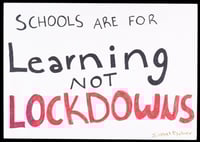 SCHOOLS ARE FOR
Learning
NOT
LOCKDOWNS